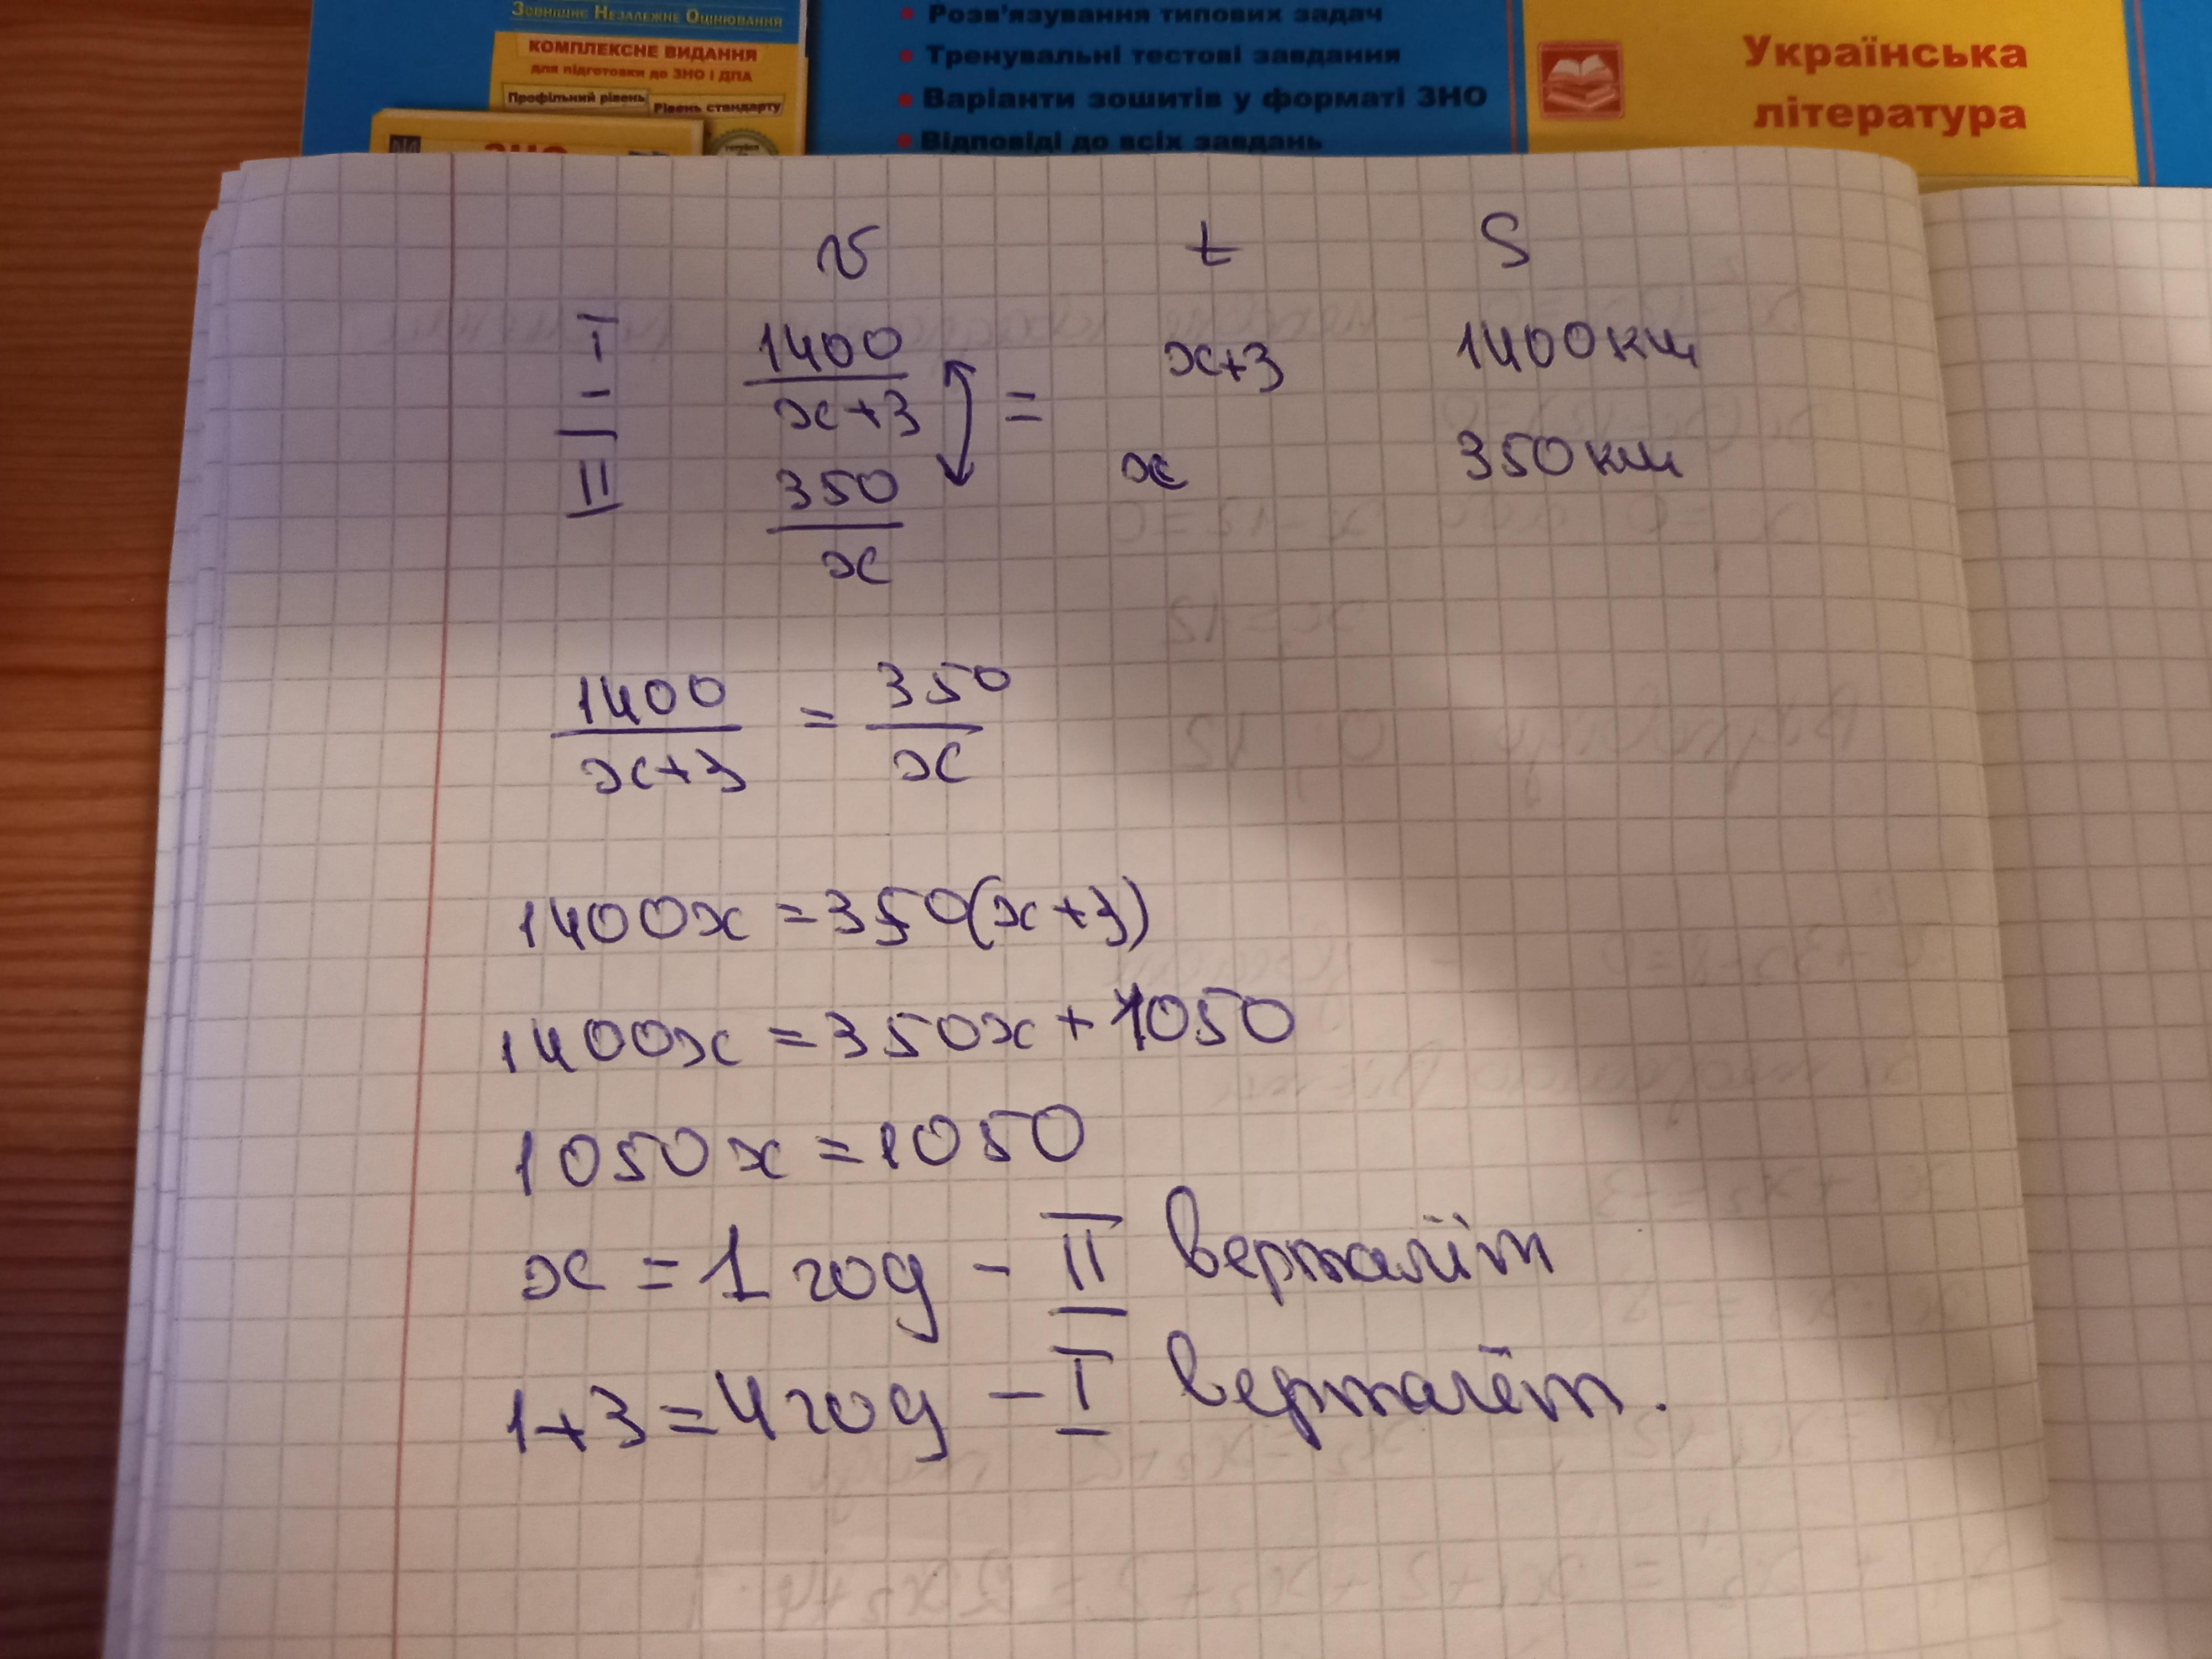 Зовнішнє Незалежне Оцінювання
КОМПЛЕКСНЕ ВИДАННЯ
для підготовки до ЗНО і ДПА
Профільний рівень
Рівень стандарту
ЗНО
Розв'язування типових задач
Тренувальні тестові завдання
Варіанти зошитів у форматі ЗНО
Відповіді до всіх завдань
Українська
література
v t S
I 1400/x+3 = x+3 1400км
II 350/x x 350км
1400/x+3 = 350/x
1400x = 350(x+3)
1400x = 350x + 1050
1050x = 1050
x = 1 год - II вертоліт
1+3 = 4 год - I вертоліт.